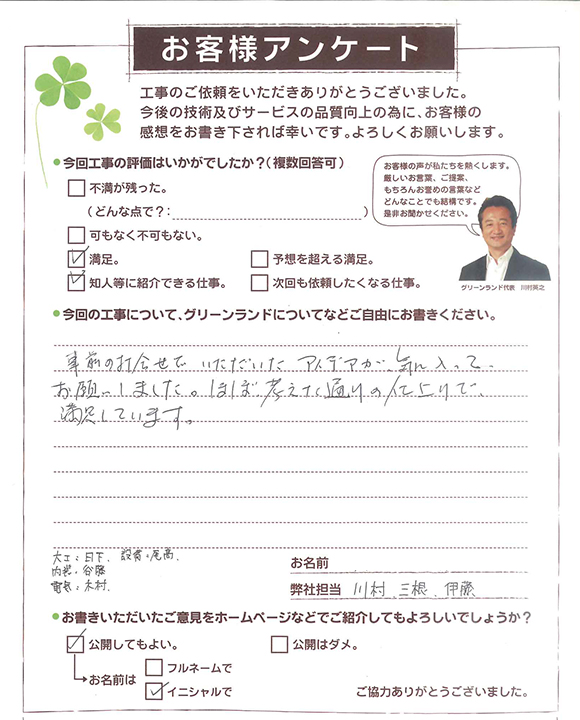 お客様アンケート
工事のご依頼をいただきありがとうございました。
今後の技術及びサービスの品質向上の為に、お客様の
感想をお書き下されば幸いです。よろしくお願いします。
●今回工事の評価はいかがでしたか?(複数回答可)
不満が残った。
(どんな点で?: )
可もなく不可もない。
満足。
予想を超える満足。
知人等に紹介できる仕事。
次回も依頼したくなる仕事。
お客様の声が私たちを熱くします。
厳しいお言葉、ご提案、
もちろんお誉めの言葉など
どんなことでも結構です。
是非お聞かせください。
グリーンランド代表 川村英之
●今回の工事について、グリーンランドについてなどご自由にお書きください。
事前の打合せで いただいた アイデアが、気に入って、
お願いしました。ほぼ、考えた通りの仕上りで、
満足しています。
大工:日下、 設備:尾高、
内装:谷藤
電気:木村、
お名前
弊社担当 川村、三根、伊藤
●お書きいただいたご意見をホームページなどでご紹介してもよろしいでしょうか?
公開してもよい。
公開はダメ。
お名前は
フルネームで
イニシャルで
ご協力ありがとうございました。